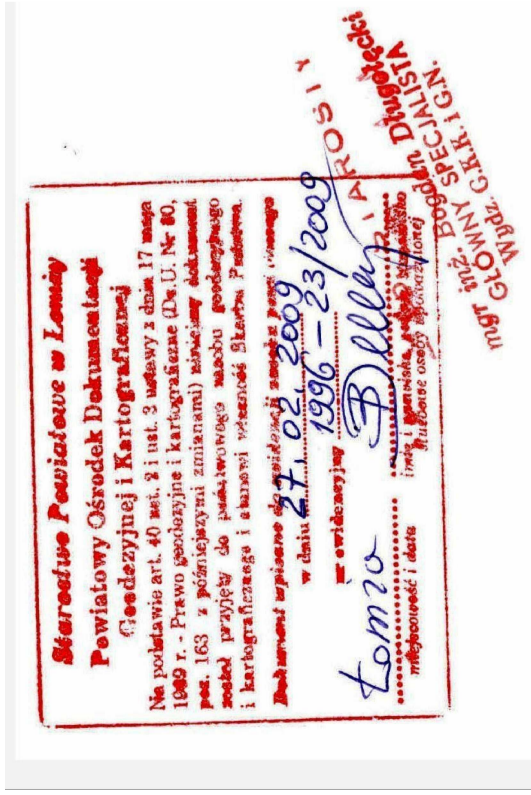 Starostwo Powiatowe w Łomży
Powiatowy Ośrodek Dokumentacji
Geodezyjnej i Kartograficznej
Na podstawie art. 40 ust. 2 i ust. 3 ustawy z dnia 17 maja
1989 r. - Prawo geodezyjne i kartograficzne (Dz. U. Nr 30,
poz. 163 z późniejszymi zmianami) niniejszy dokument
został przyjęty do państwowego zasobu geodezyjnego
i kartograficznego i stanowi własność Skarbu Państwa.
Dokument wpisano do ewidencji zasobu powiatowego
w dniu 27. 02. 2009
nr ewidencyjny 1996 - 23/2009
Łomża
miejscowość i data
imię i nazwisko,
służbowe osoby upoważnionej
STAROSTY
mgr inż. Bogdan Długołęcki
GŁÓWNY SPECJALISTA
W gdz. G.K.K. i G.N.